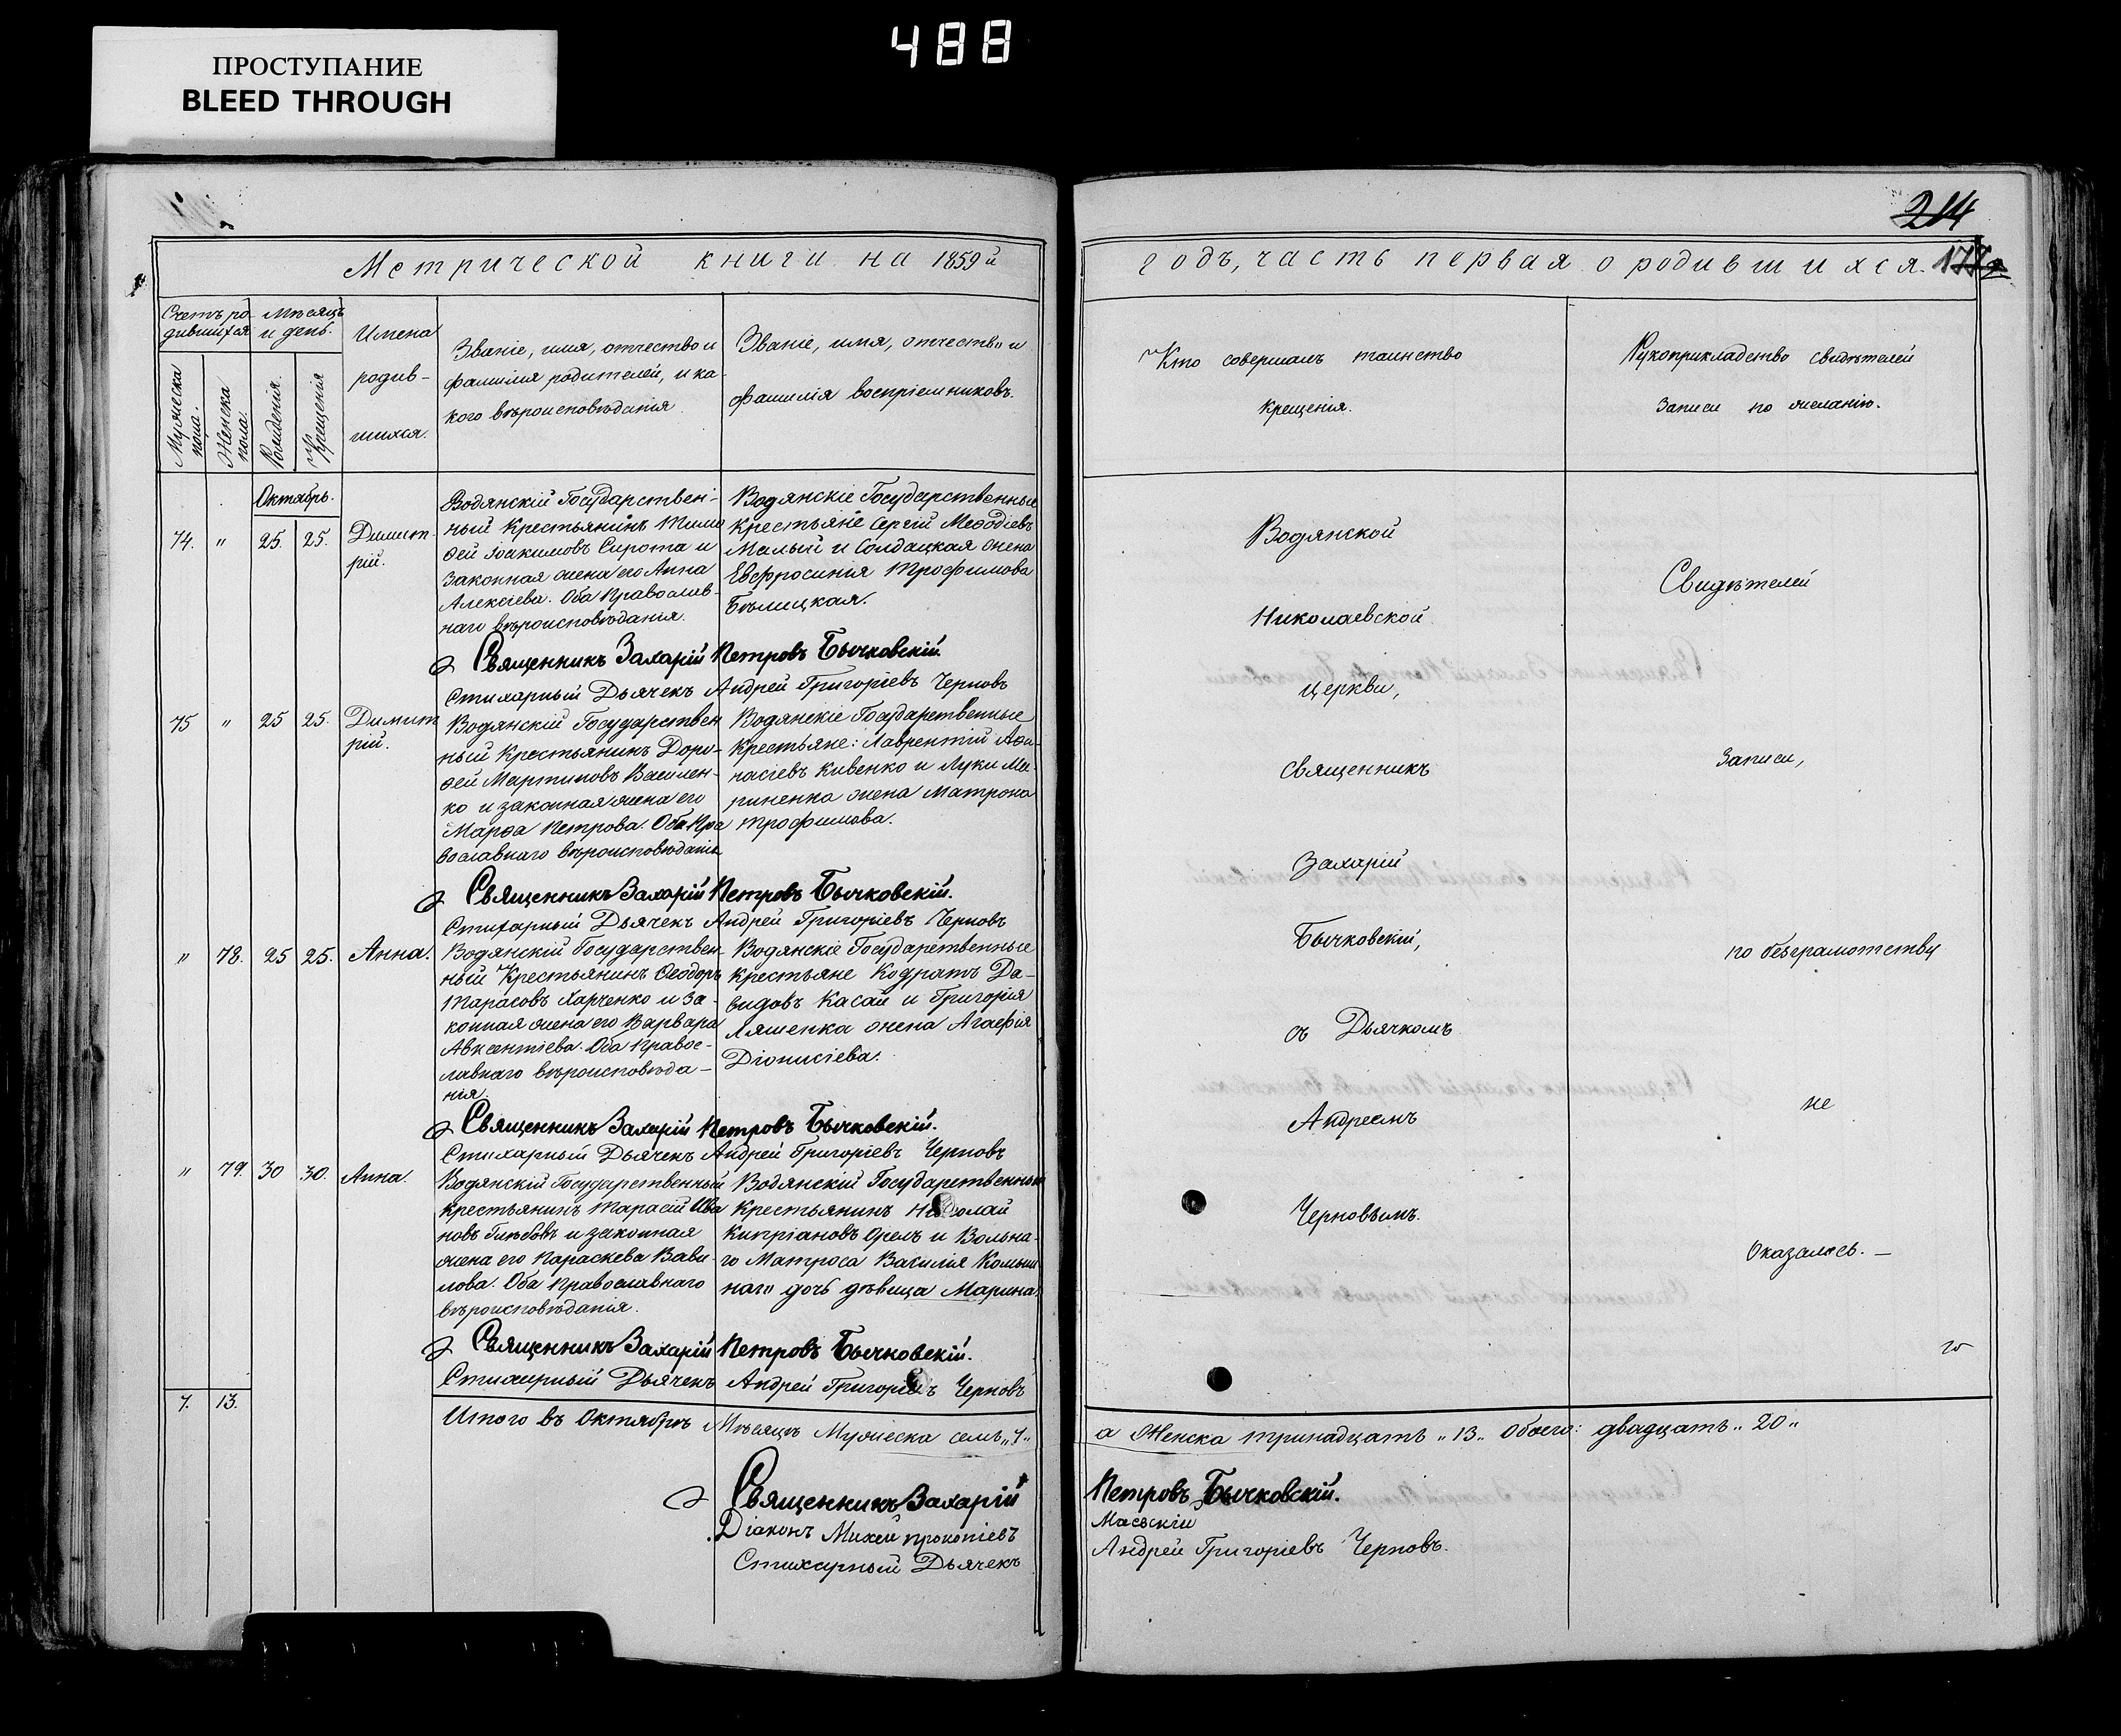 488
ПРОСТУПАНИЕ
BLEED THROUGH
214
Метрической книги на 1859 й
годъ, часть первая о родившихся.
Счетъ ро-
дившихся
Мѣсяцъ
и день.
Мужеска
пола.
Женска
пола.
Рожденія.
Крещенія
Имена
родив-
шихся.
Званіе, имя, отчество и
фамилія родителей, и ка-
кого вѣроисповѣданія.
Званіе, имя, отчество и
фамилія воспріемниковъ.
Кто совершалъ таинство
крещенія.
Рукоприкладство свидѣтелей
записи по желанію.
Октябрь.
74. " 25. 25. Димит
рій.
Водянскій Государствен-
ный крестьянинъ Тимо
ѳей Іоакимовъ Сирота и
законная жена его Анна
Алексіева. Оба Православ-
наго вѣроисповѣданія.
Водянскіе Государственные
крестьяне Сергій Меѳодіевъ
Малый и Солдацкая жена
Евфросинія Трофимова
Бѣлицкая.
Священникъ Захарій Петровъ Бычковскій.
Стихарный Дьячекъ Андрей Григоріевъ Черновъ
75 " 25 25. Димит
рій.
Водянскій Государствен
ный Крестьянинъ Доро-
ѳей Мартиновъ Василен-
ко и законная жена его
Марѳа Петрова. Оба Пра
вославнаго вѣроисповѣданія
Водянскіе Государственные
Крестьяне: Лаврентій Аѳа-
насіевъ Кивенко и Луки Ма-
риненка жена Матрона
Трофимова.
Священникъ Захарій Петровъ Бычковскій.
Стихарный Дьячекъ Андрей Григоріевъ Черновъ
" 78. 25 25. Анна.
Водянскій Государствен-
ный Крестьянинъ Ѳеодоръ
Тарасовъ Харченко и за-
конная жена его Варвара
Авксентіева. Оба Правос-
лавнаго вѣроисповѣда-
нія.
Водянскіе Государственные
крестьяне Кодратъ Да-
видовъ Касай и Григорія
Ляшенка жена Агафія
Діонисіева.
Священникъ Захарій Петровъ Бычковскій.
Стихарный Дьячекъ Андрей Григоріевъ Черновъ
" 79. 30 30. Анна.
Водянскій Государственный
крестьянинъ Тарасій Ива
новъ Глѣбовъ и законная
жена его Параскева Вави-
лова. Оба Православнаго
вѣроисповѣданія.
Водянскій Государственный
Крестьянинъ Николай
Кипріановъ Орелъ и Вольна-
го Матроса Василія
наго дочь дѣвица Марина.
Священникъ Захарій Петровъ Бычковскій.
Стихарный Дьячекъ Андрей Григоріевъ Черновъ
7. 13.
Итого въ Октябрѣ Мѣсяцѣ Мужеска семь „7„
Священникъ Захарій
Діаконъ Михей Прокопіевъ
Стихарный Дьячекъ
Водянской
Николаевской
церкви,
священникъ
Захарій
Бычковскій,
съ Дьячкомъ
Андреемъ
Черновымъ.
Свидѣтелей
записи,
по безграмотству
не
оказалось. —
а Женска тринадцать „13„ обоего: двадцать „20„
Петровъ Бычковскій.
Маевскій
Андрей Григоріевъ Черновъ.